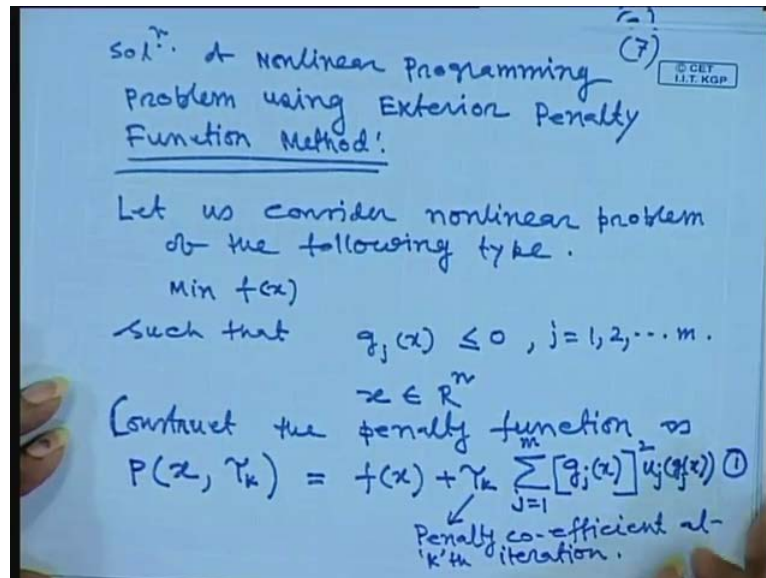 (7)
© CET
I.I.T. KGP
Solⁿ. of Nonlinear Programming
Problem using Exterior Penalty
Function Method:
Let us consider nonlinear problem
of the following type.
Min f(x)
such that g_j(x) ≤ 0, j = 1, 2, ... m.
x ∈ Rⁿ
Construct the penalty function as
P(x, γ_k) = f(x) + γ_k ∑_{j=1}^{m} [g_j(x)]² u_j(g_j(x)) ①
Penalty co-efficient at
'k'th iteration.